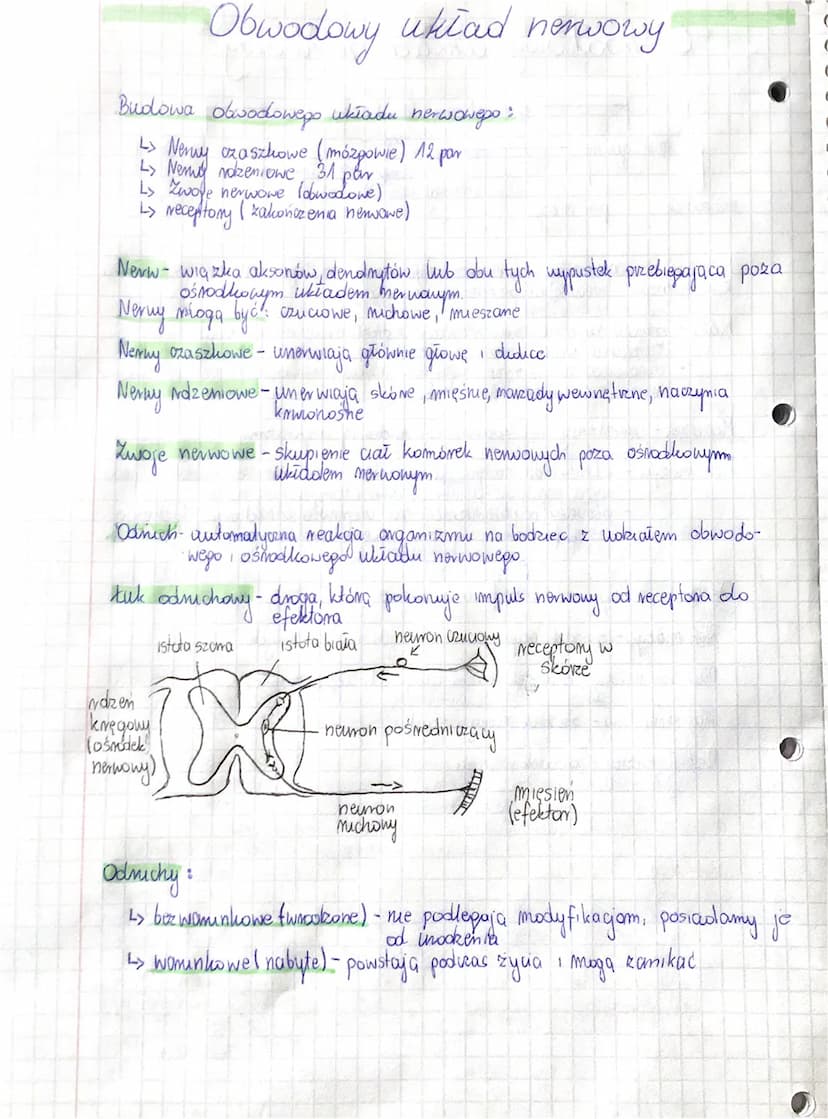 Obwodowy układ nerwowy
Budowa obwodowego układu nerwowego:
↳ Nerwy czaszkowe (mózgowie) 12 par
↳ Nerwy rdzeniowe 31 par
↳ Zwoje nerwowe (obwodowe)
↳ receptory (zakończenia nerwowe)
Nerw - wiązka aksonów, dendrytów lub obu tych wypustek przebiegająca poza
ośrodkowym układem nerwowym.
Nerwy mogą być: czuciowe, ruchowe, mieszane
Nerwy czaszkowe - unerwiają głównie głowę i
Nerwy rdzeniowe - unerwiają skórę, mięśnie, narządy wewnętrzne, naczynia
krwionośne
Zwoje nerwowe - skupienie ciał komórek nerwowych poza ośrodkowym
układem nerwowym.
Odruch - automatyczna reakcja organizmu na bodziec z udziałem obwodo-
wego i ośrodkowego układu nerwowego
Łuk odruchowy - droga, którą pokonuje impuls nerwowy od receptora do
efektora
istota szara
istota biała
neuron czuciowy
receptory w
skórze
rdzeń
kręgowy
(ośrodek
nerwowy)
neuron pośredniczący
neuron
ruchowy
mięsień
(efektor)
Odruchy:
↳ bezwarunkowe (wrodzone) - nie podlegają modyfikacjom, posiadamy je
od urodzenia
↳ warunkowe (nabyte) - powstają podczas życia i mogą zanikać